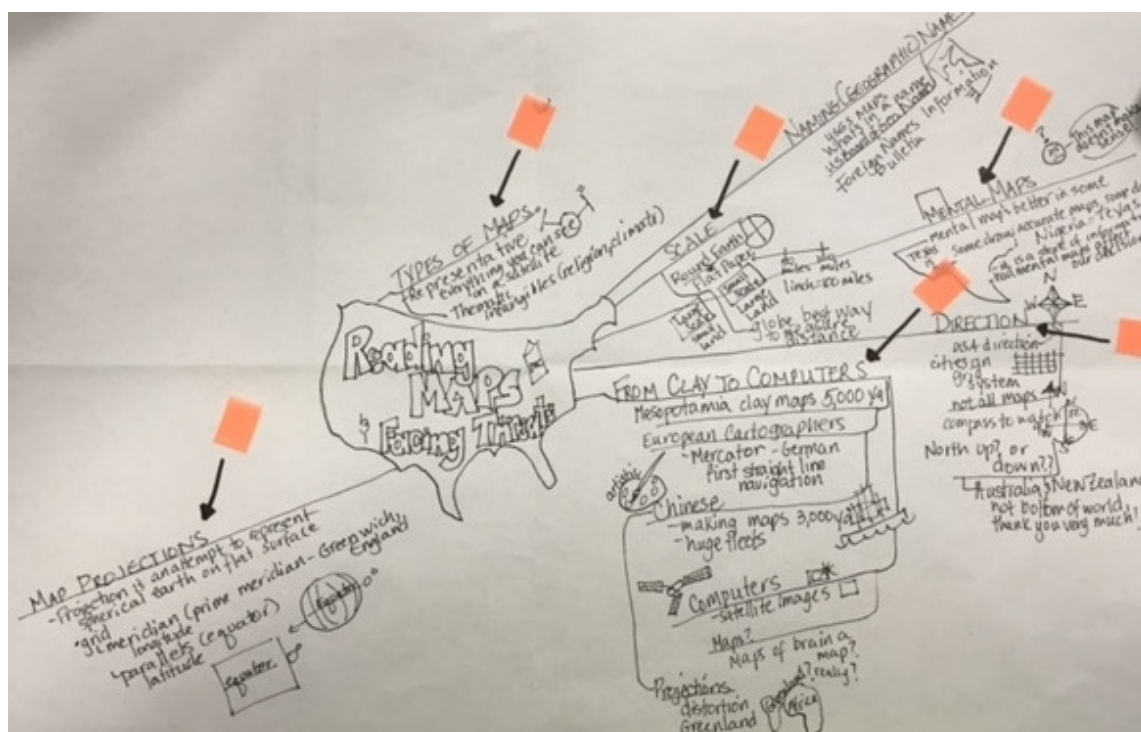 Reading
MAPS
by
Facing
TYPES OF MAPS
Representative
everything you can see
on a satellite
Thematic
intangibles (religion, climate)
SCALE
Round Earth
Flat Paper
Small
Scale
Large
Land
Large
Scale
Small
Land
miles
miles
1 inch = 100 miles
globe best way
to measure
distance
NAMING (GEOGRAPHIC) NAME
USGS MAPS
What's in a name
US Board of Geo Names
Foreign Names Information
Bulletin
?
This map
doesn't make
sense!
MENTAL MAPS
mental maps better in some
Some draw accurate maps, some do
Texas
Nigeria - Texas
is a store of informat
mental maps affect
our decisio
DIRECTION
N
W
E
USA direction
cities on
grid
system
not all maps
compass to watch
N
E
North up? or
down??
Australia & New Zealand
not bottom of world,
thank you very much!
FROM CLAY TO COMPUTERS
Mesopotamia clay maps 5,000 ya
European Cartographers
- Mercator - German
first straight line
navigation
artistic
Chinese
- making maps 3,000 ya
- huge fleets
Computers
- satellite images
Maps?
Maps of brain a
map?
really?
Projections
distortion
Greenland
Greenland?
Africa
MAP PROJECTIONS
- Projection is an attempt to represent
spherical earth on flat surface
• grid
meridian (prime meridian - Greenwich,
England
longitude
parallels (equator)
latitude
equator
0°
equator
0°